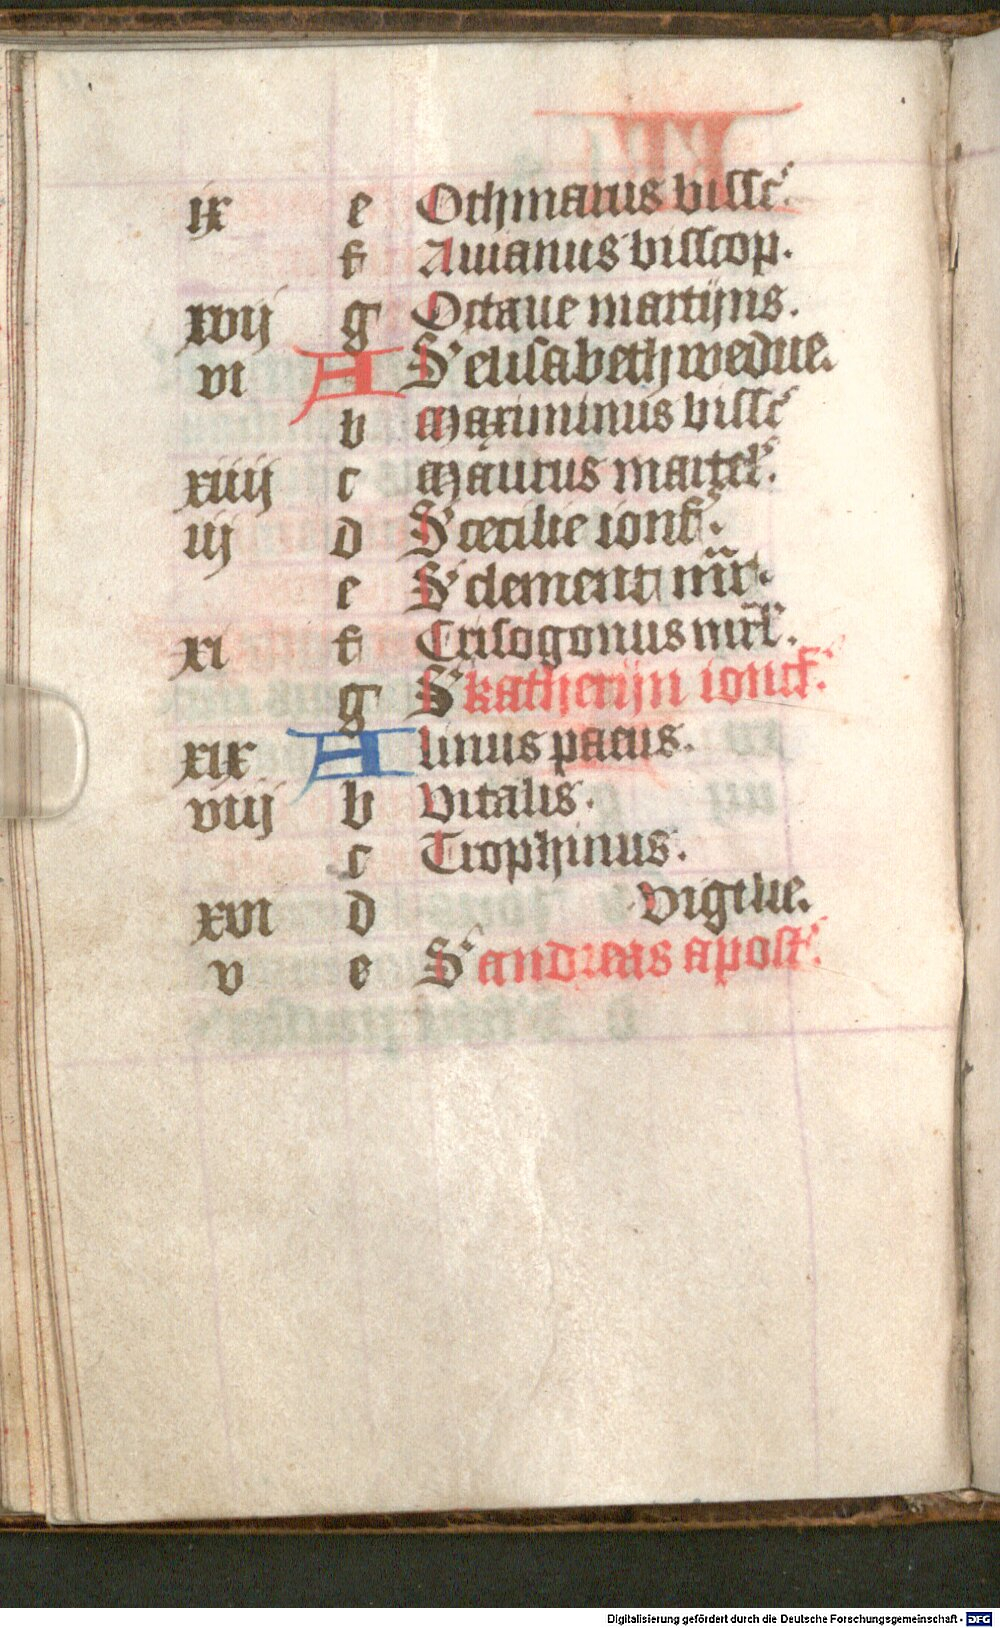 ix e Othmarus bissc'.
f Anianus bisscop.
xvij g Octaue martijns.
vi A S' elisabeth wedue.
b Maximinus bissc'
xiiij c Maurus martel'.
iij d S' cecilie ionf'.
e S' clement mr̄t.
xi f Crisogonus mr̄l'.
g S' katherijn ionck'.
xix A linus paeus.
viij b vitalis.
c Trophinus.
xvi d vigilie.
v e S' andreas apost'.
Digitalisierung gefördert durch die Deutsche Forschungsgemeinschaft - DFG